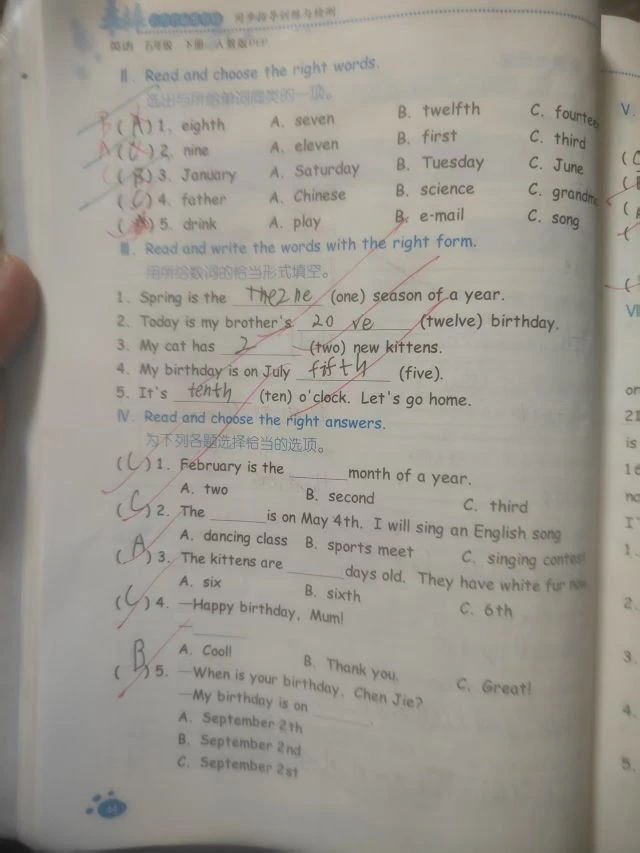 同步指导训练与检测
英语 五年级 下册 人教版PEP
Ⅱ. Read and choose the right words.
选出与所给单词同类的一项。
(A) 1. eighth A. seven B. twelfth C. fourteen
(C) 2. nine A. eleven B. first C. third
(B) 3. January A. Saturday B. Tuesday C. June
(C) 4. father A. Chinese B. science C. grandma
( ) 5. drink A. play B. e-mail C. song
Ⅲ. Read and write the words with the right form.
用所给数词的恰当形式填空。
1. Spring is the (one) season of a year.
2. Today is my brother's 20 ve (twelve) birthday.
3. My cat has 2 (two) new kittens.
4. My birthday is on July fifth (five).
5. It's tenth (ten) o'clock. Let's go home.
Ⅳ. Read and choose the right answers.
为下列各题选择恰当的选项。
(C) 1. February is the ______ month of a year.
A. two B. second C. third
(C) 2. The ______ is on May 4th. I will sing an English song
A. dancing class B. sports meet C. singing contest
(A) 3. The kittens are ______ days old. They have white fur now
A. six B. sixth C. 6th
(C) 4. —Happy birthday, Mum!
—______
A. Cool! B. Thank you. C. Great!
(B) 5. —When is your birthday, Chen Jie?
—My birthday is on ______.
A. September 2th
B. September 2nd
C. September 2st
44
Ⅴ.
Ⅶ
or
21
is
16
no
I'
1.
2.
3.
4.
5.